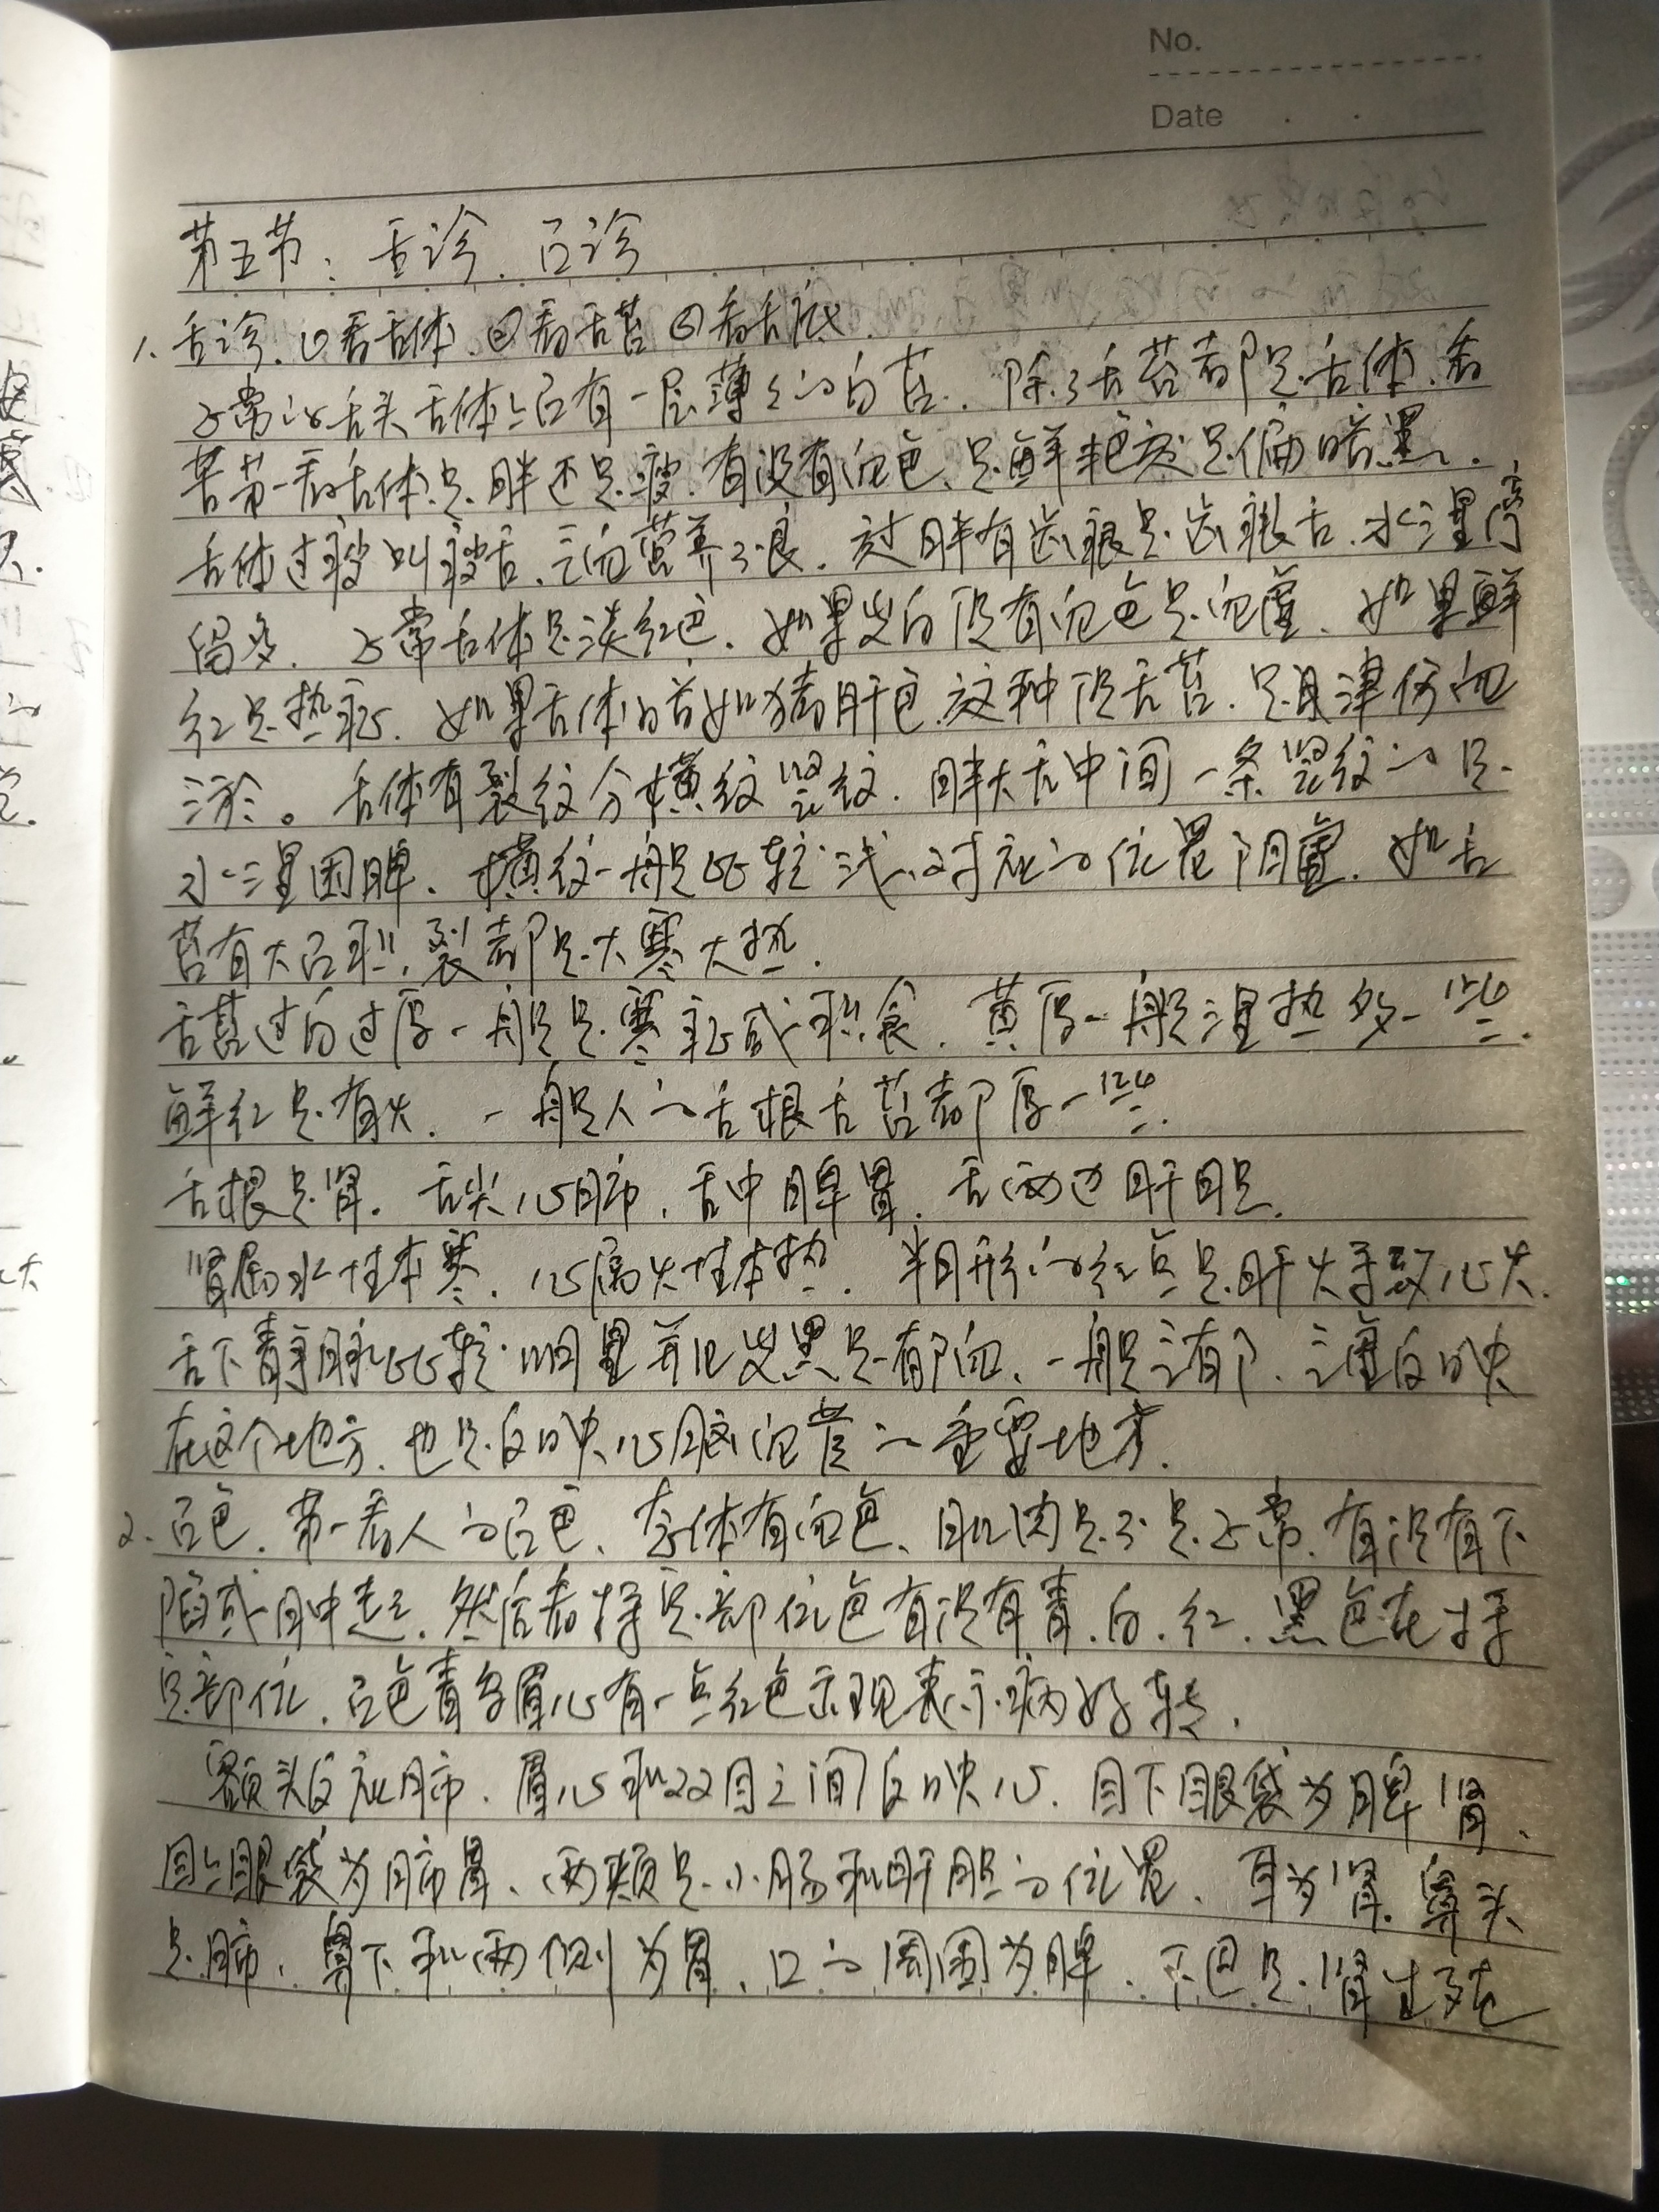 No.
Date
第五节：舌诊、面诊
1、舌诊、①看舌体、②看舌苔 ③看舌底
正常的舌头舌体上应有一层薄薄的白苔、除了舌苔都是舌体、看
舌第一看舌体是胖还是瘦、有没有血色、是鲜艳还是偏暗黑、
舌体过瘦叫瘦舌、气血营养不良、过胖有齿痕是齿痕舌、水湿停
留多、正常舌体是淡红色、如果发白没有血色是血虚、如果鲜
红是热证、如果舌体暗如猪肝色、这种没舌苔、是津伤血
淤。舌体有裂纹分横纹竖纹、胖大舌中间一条竖纹的是
水湿困脾、横纹一般比较浅、对应的位置阴虚、如舌
苔有大面积裂都是大寒大热、
舌苔过白过厚一般是寒证或积食、黄厚一般湿热多一些、
鲜红是有火、一般人的舌根舌苔都厚一些、
舌根是肾。舌尖心肺、舌中脾胃、舌两边肝胆、
肾属水性本寒、心属火性本热、半月形的红点是肝火导致心火、
舌下静脉比较明显并且发黑是有瘀血、一般气郁、气虚反映
在这个地方、也是反映心脑血管的重要地方、
2、面色、第一看人的面色、整体有血色、肌肉是不是正常、有没有下
陷或肿起、然后看特定部位色有没有青、白、红、黑色在特
定部位、面色青多眉心有一点红色出现表示病好转、
额头反应肺、眉心和双目之间反映心、目下眼袋为脾肾、
目上眼袋为肺胃、两颊是小肠和肝胆的位置、耳为肾、鼻头
是肺、鼻下和两侧为胃、口的周围为脾、下巴是肾生殖